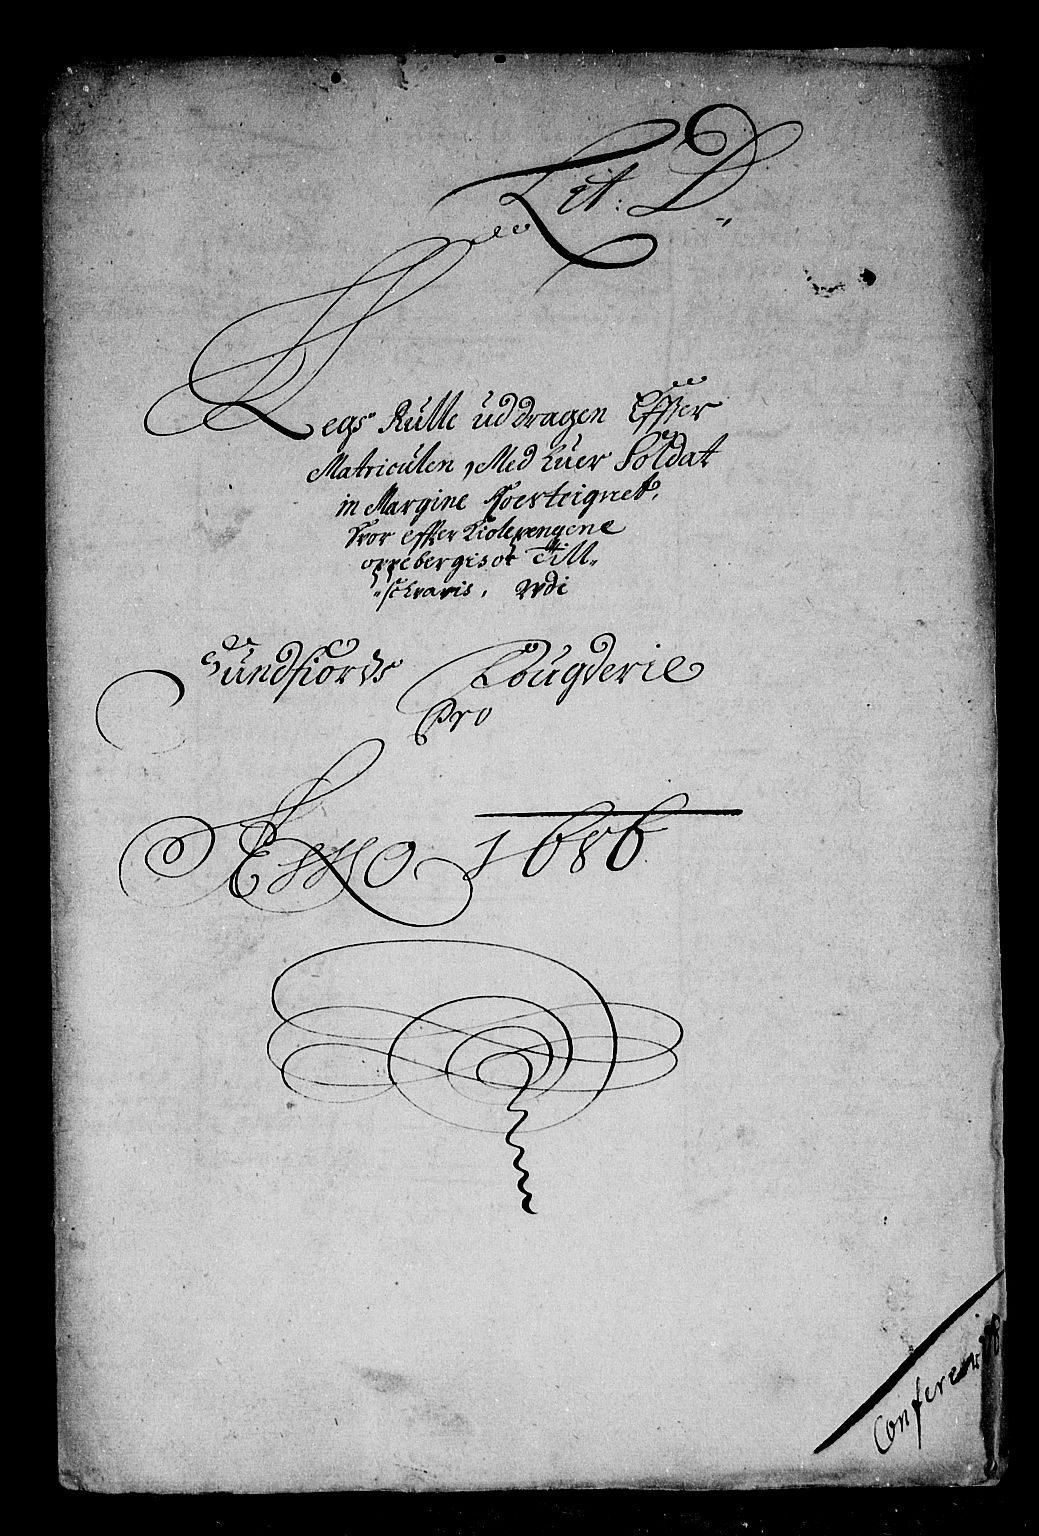 Lit: D.
Legs Rulle uddragen Effter
Matriculen, Med huer Soldat
in Margine Foerteignet,
hvor effter Kiolepengene
oppebergis oc Till„
„schrævis, udi
Sundfiords Fougderie
Pro
Anno 1686
Confereerit